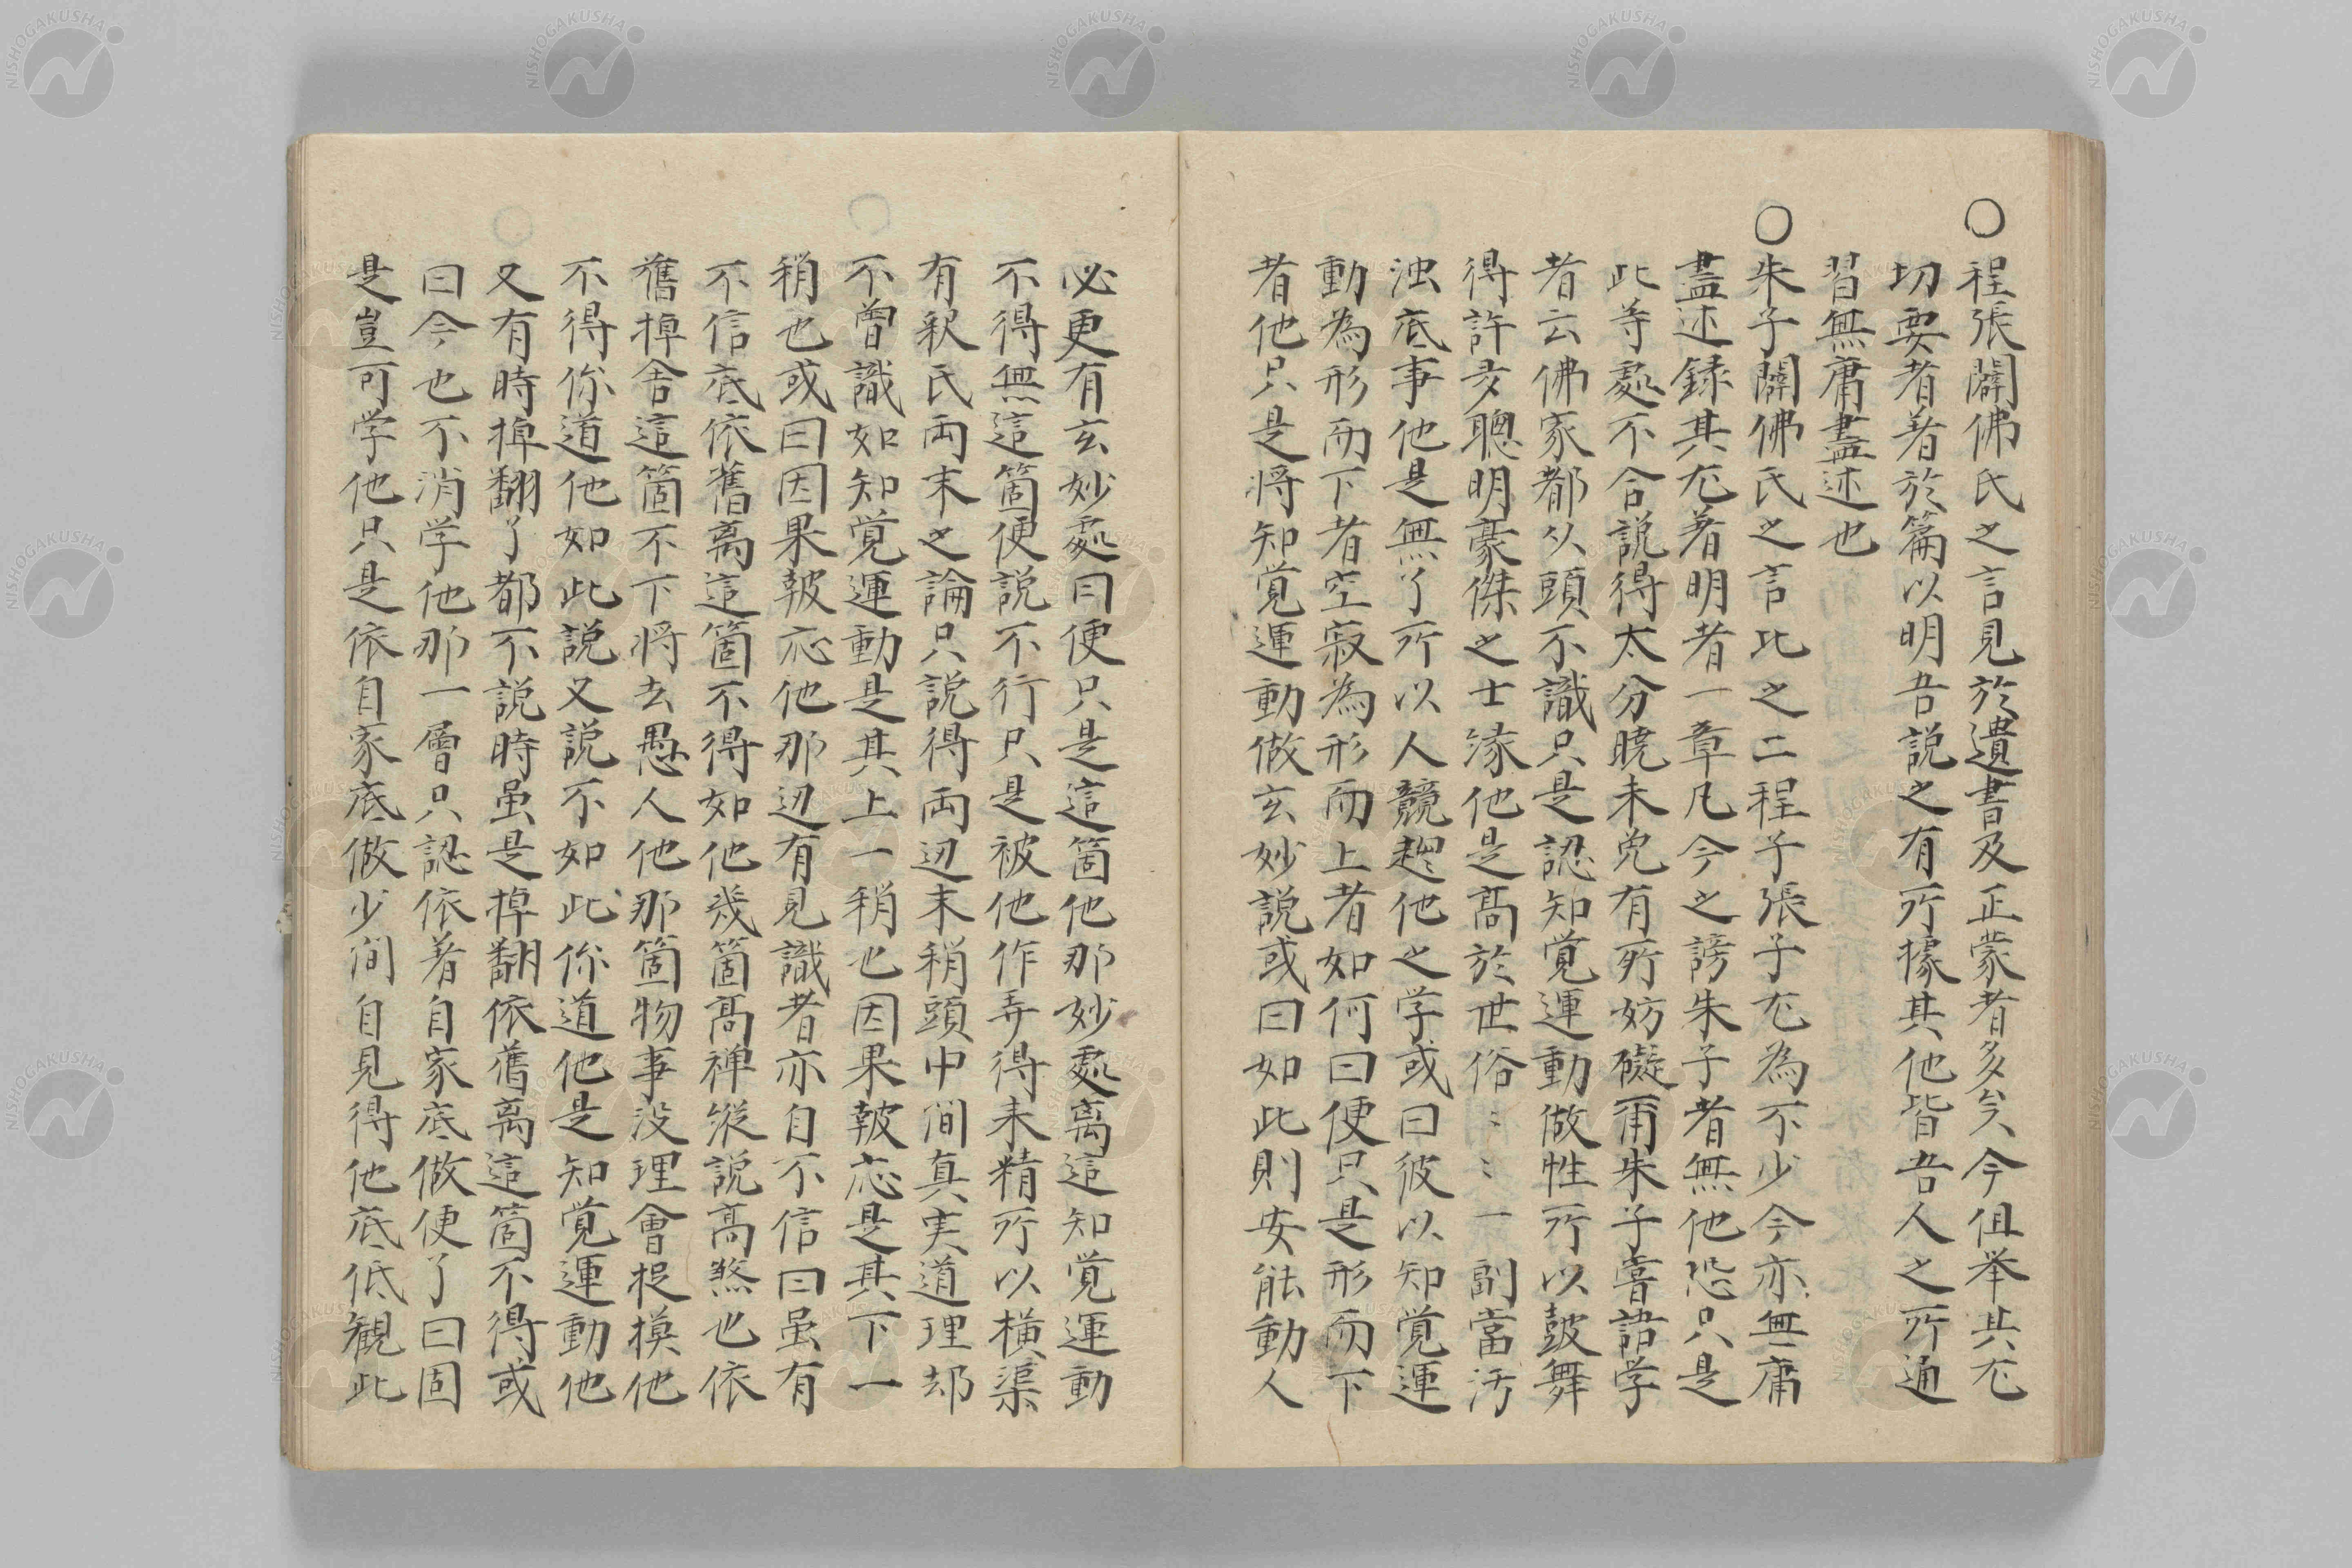 ○程張闢佛氏之言見於遺書及正蒙者多矣今但举其尤
切要者著於篇以明吾説之有所據其他皆吾人之所通
習無庸盡述也
○朱子闢佛氏之言比之二程子張子尤為不少今亦無庸
盡述録其尤著明者一章凡今之謗朱子者無他恐只是
此等處不合説得太分暁未免有所妨礙甫朱子嘗語学
者云佛家都从頭不識只是認知覚運動做性所以鼓舞
得許多聰明豪傑之士縁他是髙於世俗〻〻一副當汚
浊底事他是無了所以人競趨他之学或曰彼以知覚運
動為形而下者空寂為形而上者如何曰便只是形而下
者他只是将知覚運動做玄妙説或曰如此則安能動人
必更有玄妙處曰便只是這箇他那妙處离這知覚運動
不得無這箇便説不行只是被他作弄得来精所以横渠
有釈氏両末之論只説得両边末稍頭中间真実道理却
不曽識如知覚運動是其上一稍也因果報応是其下一
稍也或曰因果報応他那边有見識者亦自不信曰虽有
不信底依舊离這箇不得如他幾箇髙禅縦説髙煞也依
舊掉舎這箇不下将去愚人他那箇物事没理會捉摸他
不得你道他如此説又説不如此你道他是知覚運動他
又有時掉翻了都不説時虽是掉翻依舊离這箇不得或
曰今也不消学他那一層只認依著自家底做便了曰固
是豈可学他只是依自家底做少间自見得他底低観此
NISHOGAKUSHA